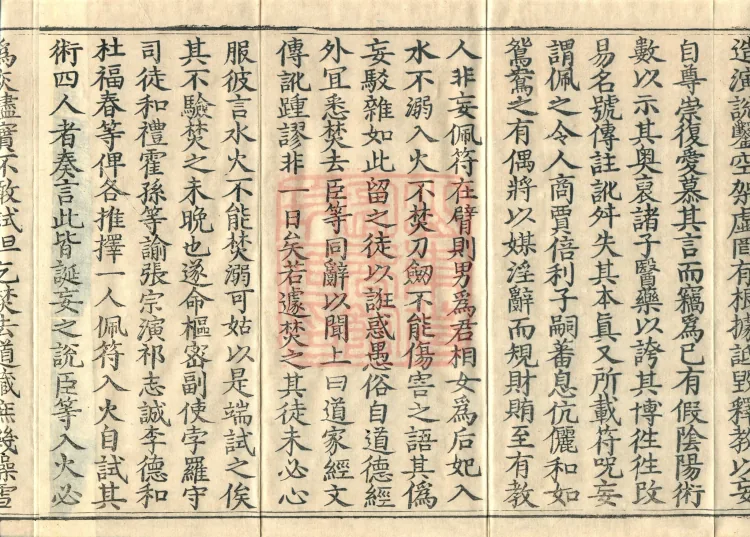 造演說鑿空架虛罔有根據詆毀釋教以妄
自尊崇復愛慕其言而竊為己有假陰陽術
數以示其奧裒諸子醫藥以誇其博徃徃改
易名號傳註訛舛失其本真又所載符咒妄
謂佩之令人商賈倍利子嗣蕃息伉儷和如
鴛鴦之有偶將以媒淫辭而規財賄至有教
人非妄佩符在臂則男為君相女為后妃入
水不溺入火不焚刀劒不能傷害之語其偽
妄駁雜如此留之徒以誑惑愚俗自道德經
外宜悉焚去臣等同辭以聞上曰道家經文
傳訛踵謬非一日矣若遽焚之其徒未必心
服彼言水火不能焚溺可姑以是端試之俟
其不驗焚之未晚也遂命樞密副使孛羅守
司徒和禮霍孫等諭張宗演祁志誠李德和
杜福春等俾各推擇一人佩符入火自試其
術四人者奏言此皆誕妄之說臣等入火必
為灰燼實不敢試但乞焚去道藏庶幾澡雪